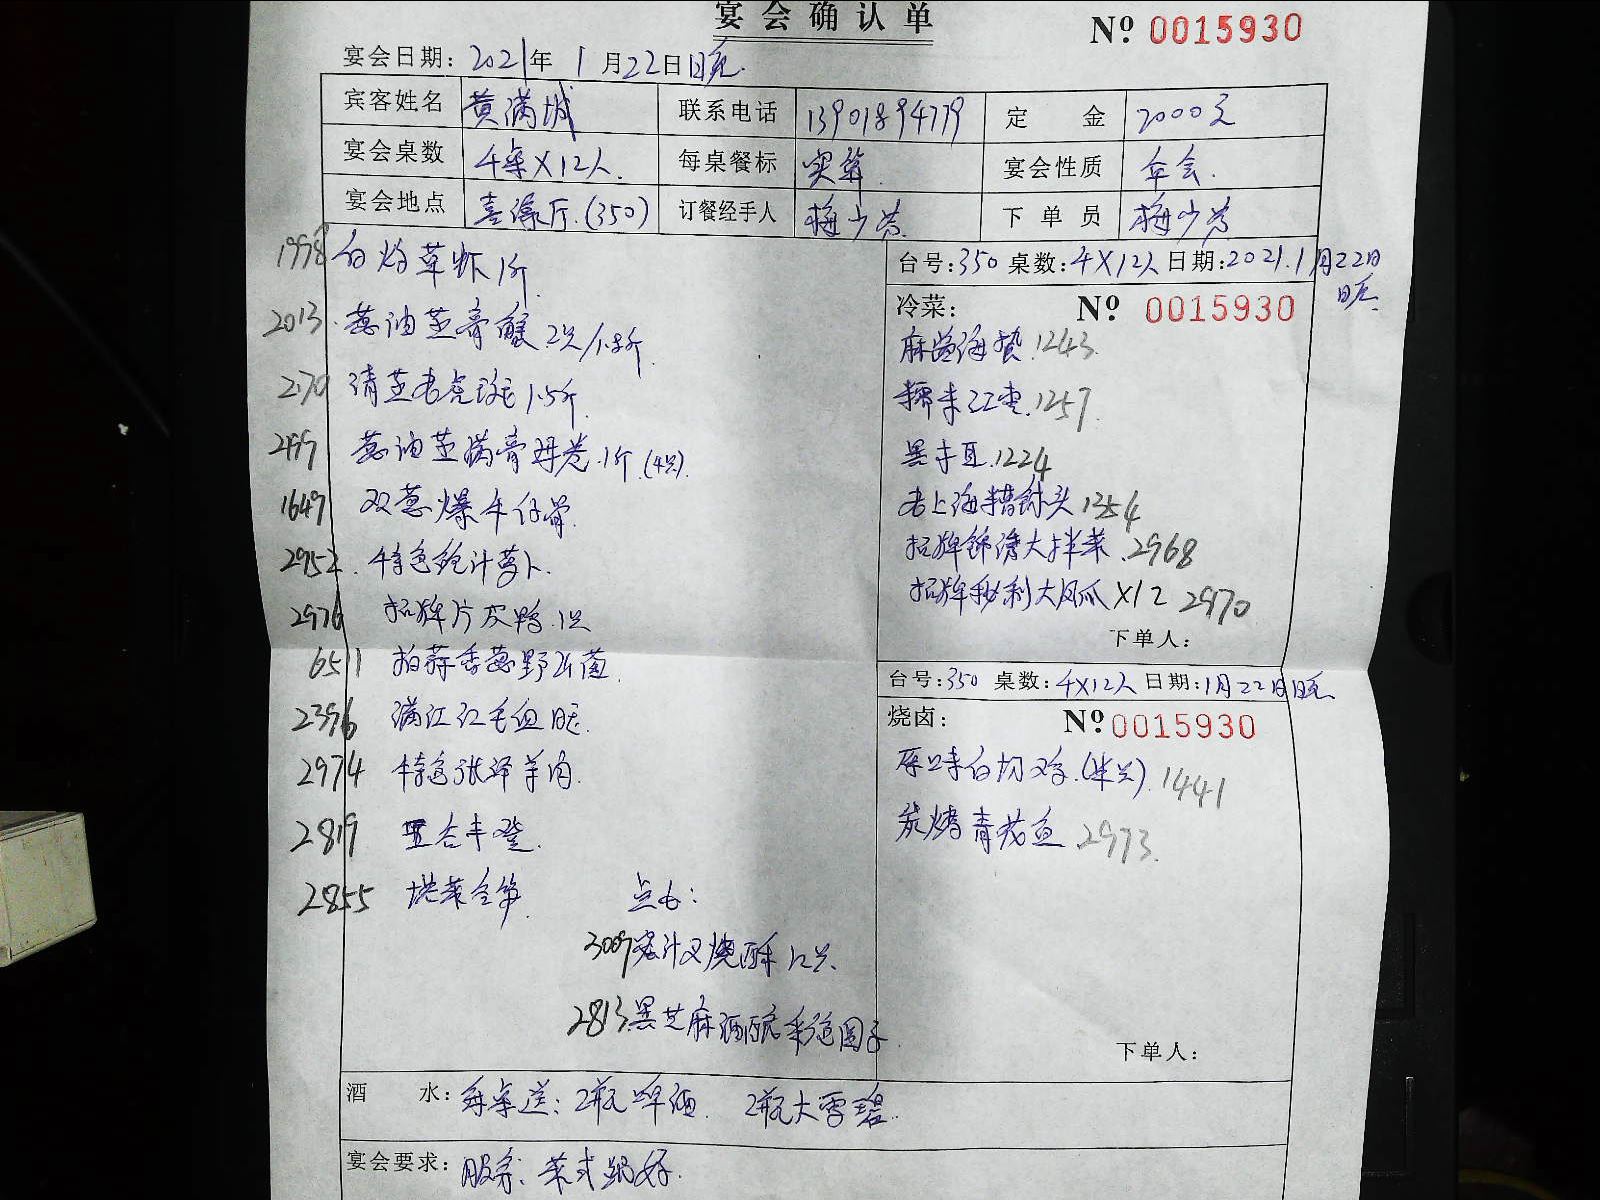 宴会确认单
Nº 0015930
宴会日期: 2021年 1月22日晚
宾客姓名 黄满城 联系电话 13901894779 定金 2000元
宴会桌数 4桌X12人. 每桌餐标 实算. 宴会性质 年会.
宴会地点 喜缘厅.(350) 订餐经手人 梅少芳 下单员 梅少芳
1998 白灼草虾 1斤
2013. 葱油蒸膏蟹 2只/1.8斤
2170 清蒸老虎斑 1.5斤
2199 葱油蒸满膏 1斤.(4只).
1649 双葱爆牛仔骨.
2952. 特色鲍汁萝卜.
2976 招牌片皮鸭. 1只
6511 拍蒜香葱野山菌.
2396 满江红毛血旺.
2974 特色张泽羊肉.
2819 五谷丰登.
2855 塔菜冬笋
点心:
3009 密汁叉烧酥 12只.
2813 黑芝麻酒酿彩色圆子.
台号:350 桌数:4X12人 日期:2021.1月22日晚
冷菜: Nº 0015930
麻酱海蜇.1243.
糯米红枣.1257.
黑木耳.1224
老上海糟钵头 1354
招牌锦绣大拌菜.2968
招牌秘制大凤爪X12 2970
下单人:
台号:350 桌数:4X12人 日期:1月22日晚
烧卤: Nº 0015930
原味白切鸡.(半只). 1441
炭烤青花鱼 2973.
下单人:
酒水: 每桌送: 2瓶啤酒. 2瓶大雪碧.
宴会要求: 服务: 菜式跟好.